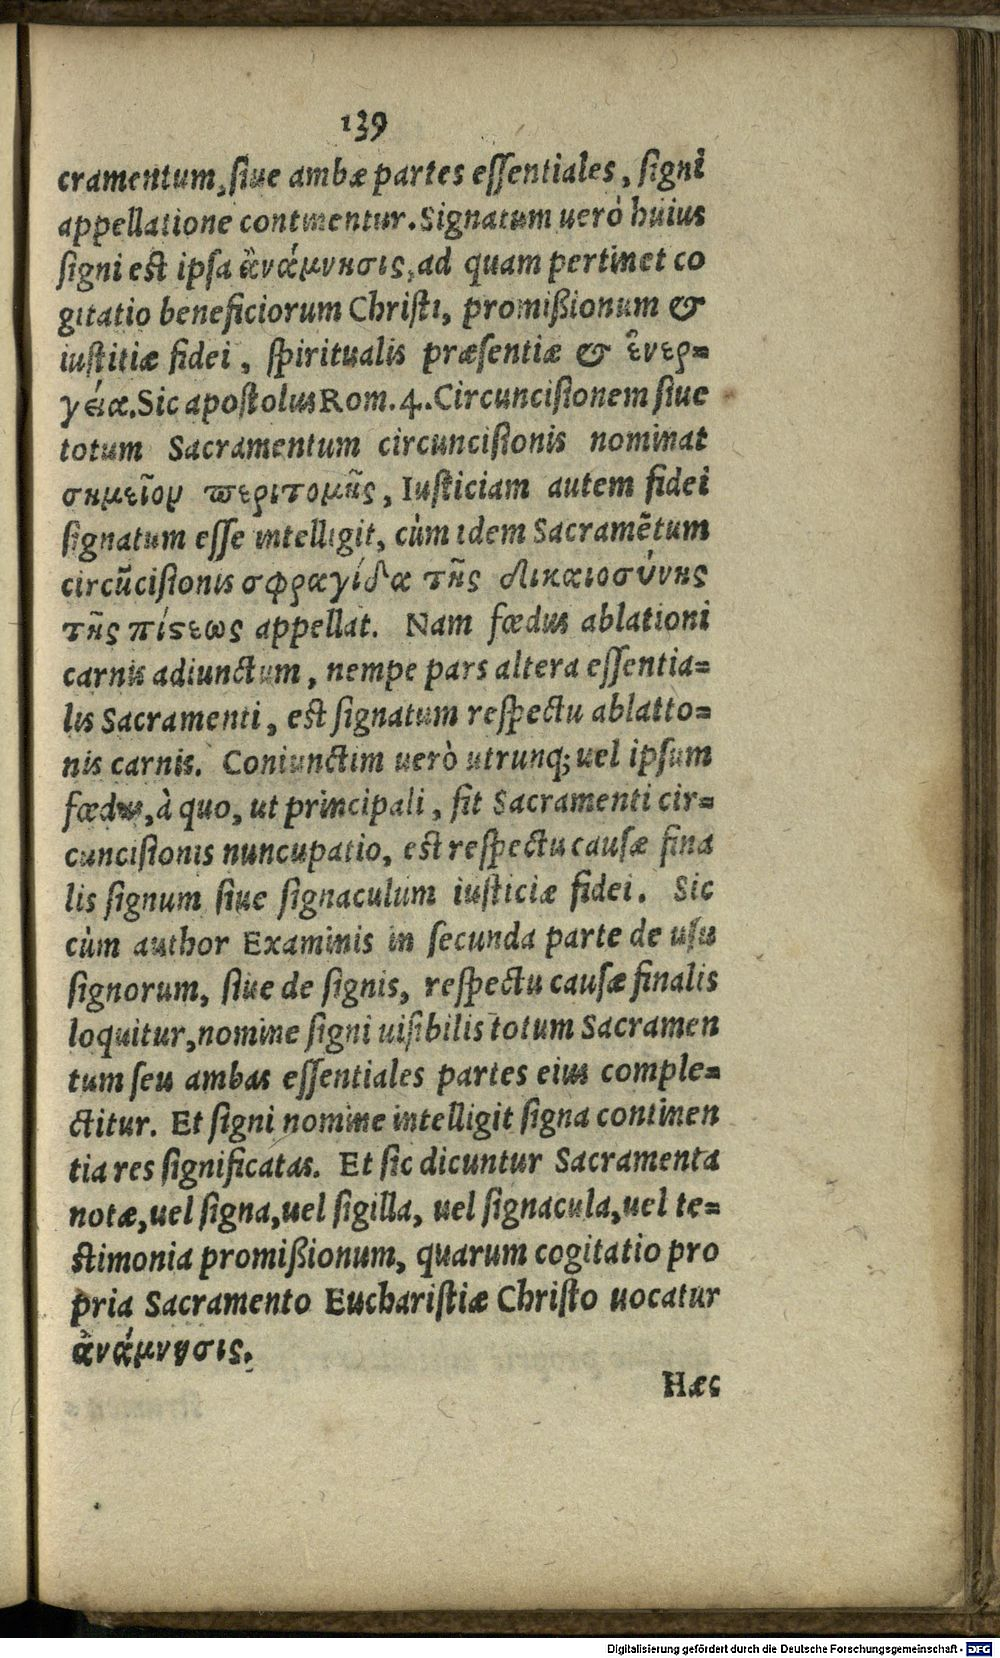 139
cramentum, siue ambæ partes essentiales, signi
appellatione continentur. Signatum uerò huius
signi est ipsa ἀνάμνησις, ad quam pertinet co
gitatio beneficiorum Christi, promißionum &
iustitiæ fidei, spiritualis præsentiæ & ἐνερ=
γείας. Sic apostolus Rom. 4. Circuncisionem siue
totum Sacramentum circuncisionis nominat
σημεῖον περιτομῆς, Iusticiam autem fidei
signatum esse intelligit, cùm idem Sacramẽtum
circũcisionis σφραγίδα τῆς δικαιοσύνης
τῆς πίστεως appellat. Nam fœdus ablationi
carnis adiunctum, nempe pars altera essentia=
lis Sacramenti, est signatum respectu ablatio=
nis carnis. Coniunctim uerò utrunq; uel ipsum
fœdus, à quo, ut principali, fit Sacramenti cir=
cuncisionis nuncupatio, est respectu causæ fina
lis signum siue signaculum iusticiæ fidei. Sic
cùm author Examinis in secunda parte de usu
signorum, siue de signis, respectu causæ finalis
loquitur, nomine signi uisibilis totum Sacramen
tum seu ambas essentiales partes eius comple=
ctitur. Et signi nomine intelligit signa continen
tia res significatas. Et sic dicuntur Sacramenta
notæ, uel signa, uel sigilla, uel signacula, uel te=
stimonia promißionum, quarum cogitatio pro
pria Sacramento Eucharistiæ Christo uocatur
ἀνάμνησις.
Hæc
Digitalisierung gefördert durch die Deutsche Forschungsgemeinschaft - DFG